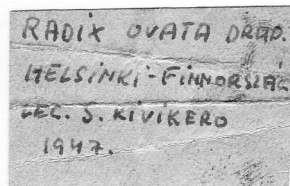 RADIX OVATA DRAP.
HELSINKI-FINNORSZÁG
LEG. S. KIVIKERO
1947.